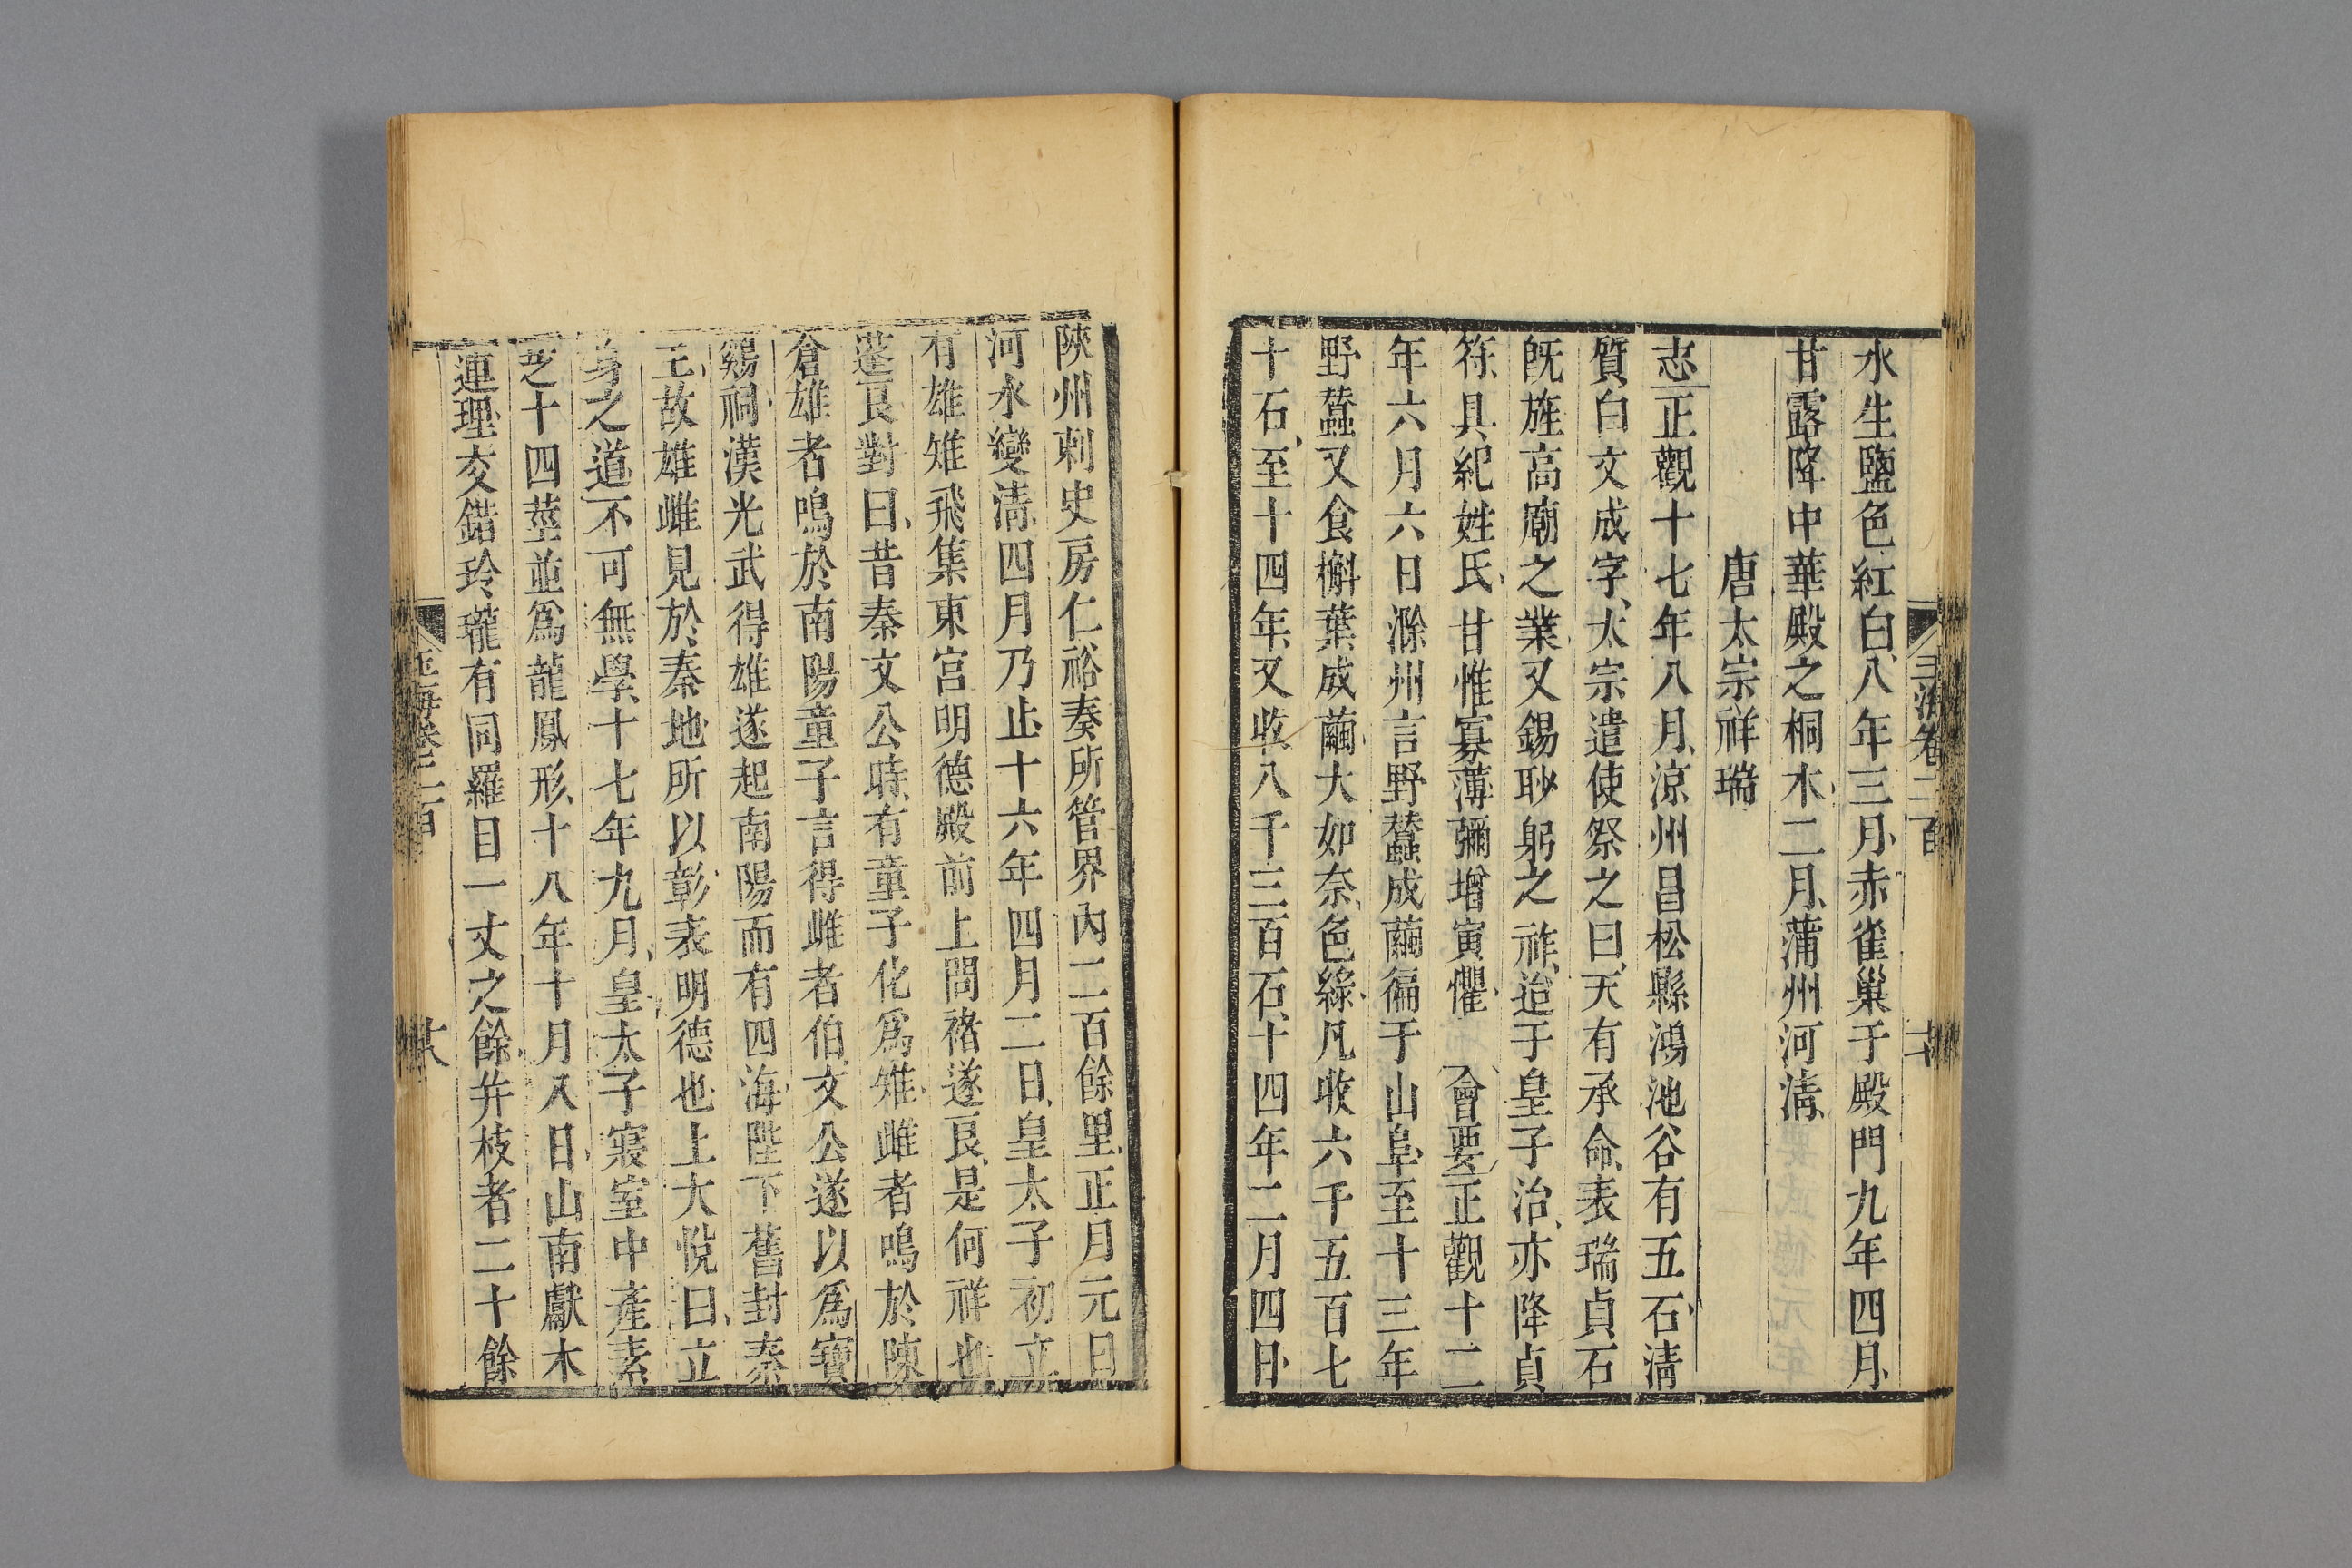 水生鹽色紅白八年三月赤雀巢于殿門九年四月
甘露降中華殿之桐木二月蒲州河淸
唐太宗祥瑞
志正觀十七年八月涼州昌松縣鴻池谷有五石淸
質白文成字太宗遣使祭之曰天有承命表瑞貞石
旣旌高廟之業又錫眇躬之祚迨于皇子治亦降貞
符具紀姓氏甘惟寡薄彌增寅懼 會要正觀十二
年六月六日滁州言野蠶成繭徧于山阜至十三年
野蠶又食槲葉成繭大如奈色綠凡收六千五百七
十石至十四年又收八千三百石十四年二月四日
陝州刺史房仁裕奏所管界內二百餘里正月元日
河水變淸四月乃止十六年四月二日皇太子初立
有雄雉飛集東宮明德殿前上問褚遂良是何祥也
遂良對曰昔秦文公時有童子化爲雉雌者鳴於陳
倉雄者鳴於南陽童子言得雌者伯文公遂以爲寶
鷄祠漢光武得雄遂起南陽而有四海陛下舊封秦
王故雄雌見於秦地所以彰表明德也上大悅曰立
身之道不可無學十七年九月皇太子寢室中產素
芝十四莖並爲龍鳳形十八年十月八日山南獻木
連理交錯玲瓏有同羅目一丈之餘幷枝者二十餘
玉海卷二百
玉海卷二百